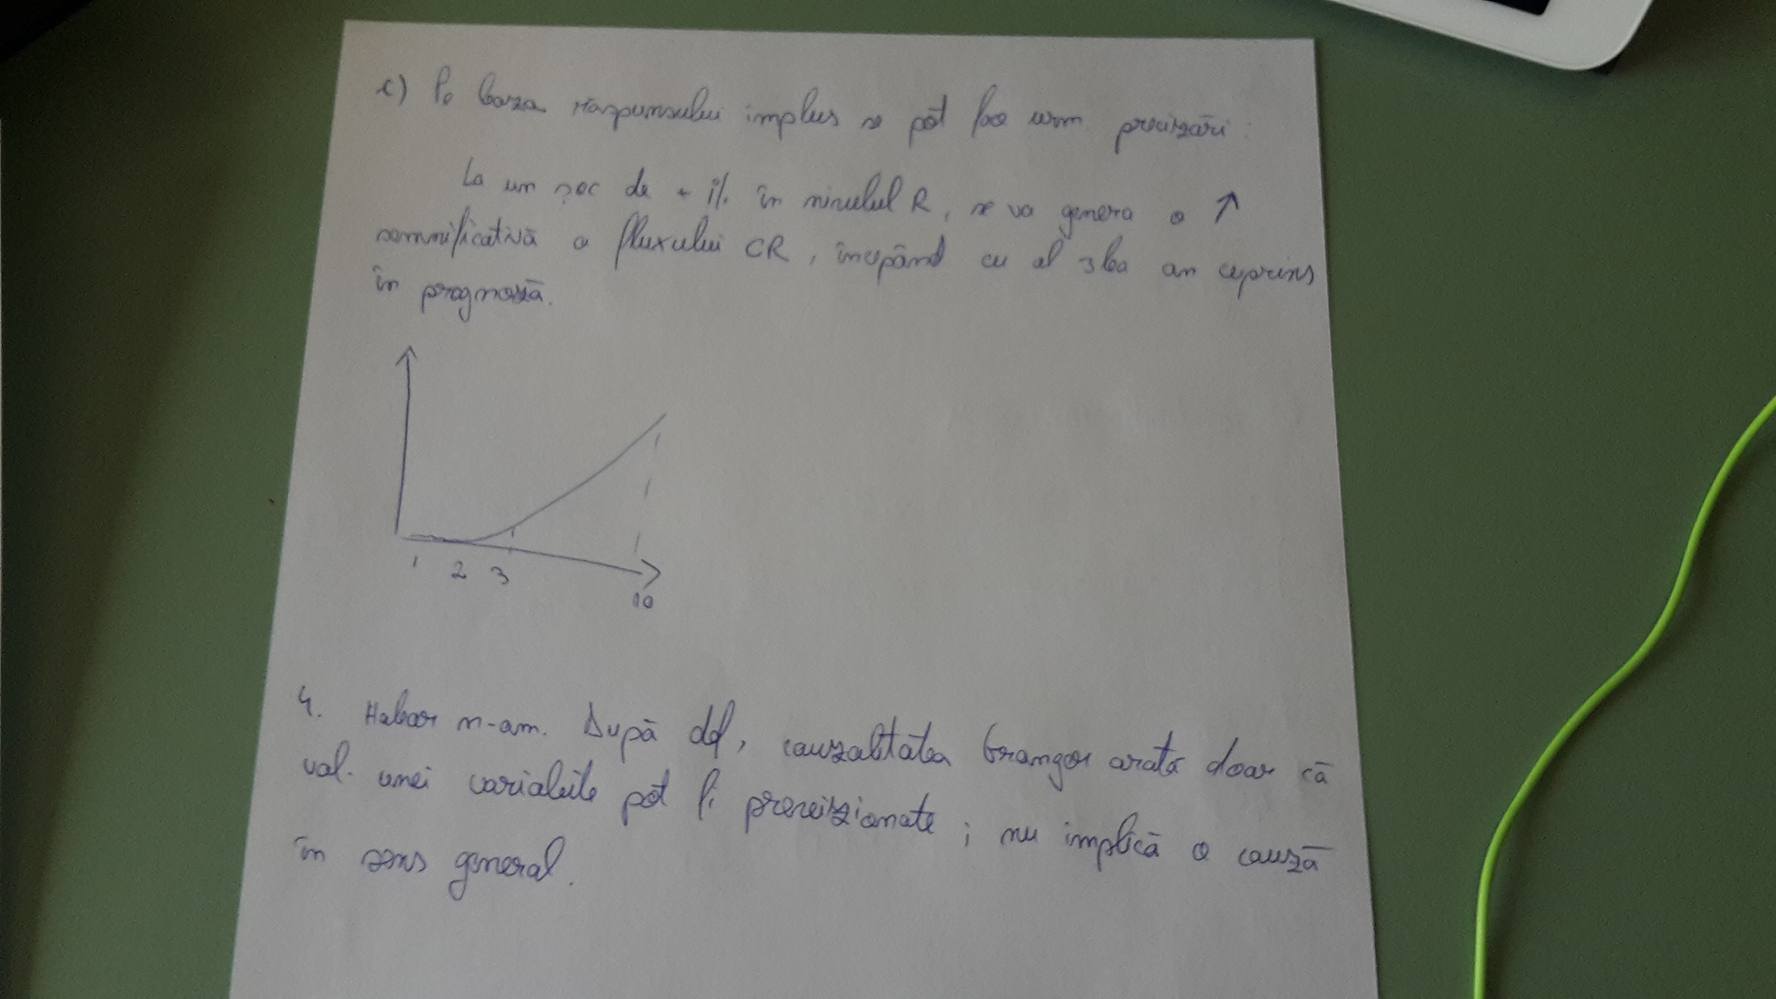 c) Pe baza răspunsului implus se pot face urm precizări:
La un șoc de + 1% în nivelul R, se va genera o ↑
semnificativă a fluxului CR, începând cu al 3lea an cuprins
în prognoză.
1 2 3
10
4. Habar n-am. După def, cauzalitatea Granger arată doar că
val. unei variabile pot fi previzionate; nu implică o cauză
în sens general.